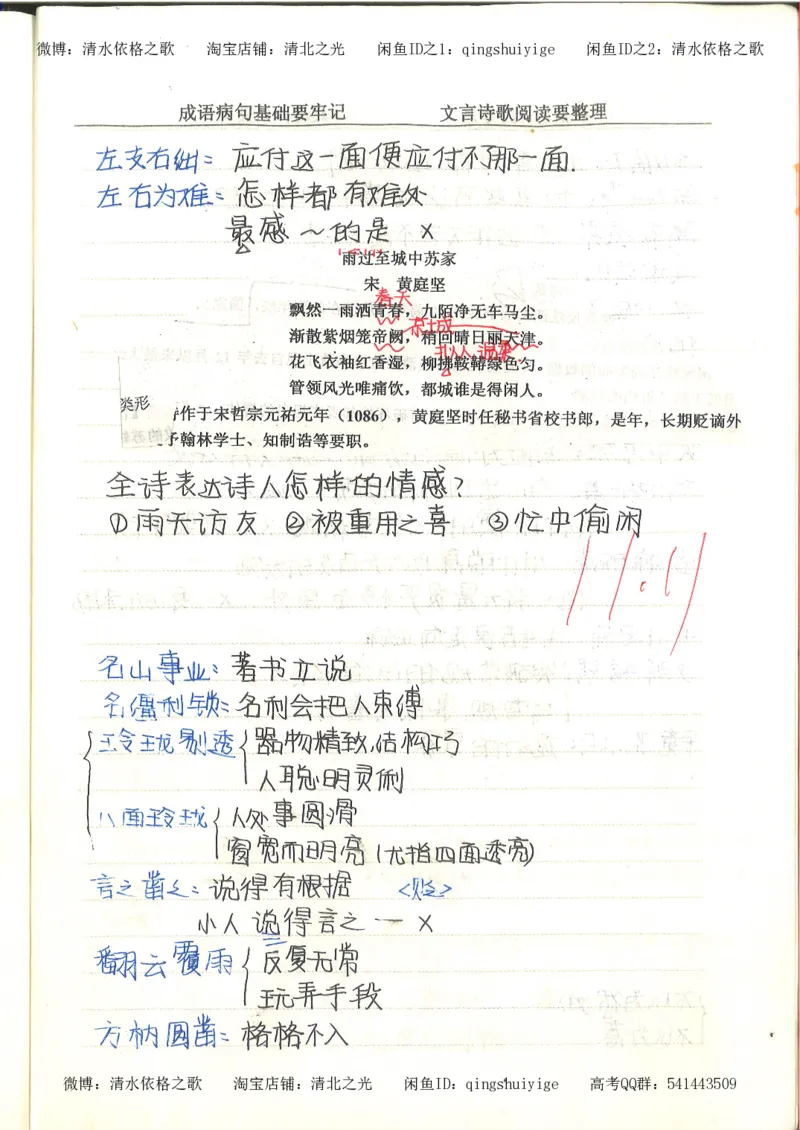 微博：清水依格之歌 淘宝店铺：清北之光 闲鱼ID之1：qingshuiyige 闲鱼ID之2：清水依格之歌
成语病句基础要牢记 文言诗歌阅读要整理
左支右绌：应付这一面便应付不了那一面.
左右为难：怎样都有难处
最感～的是 ×
雨过至城中苏家
宋 黄庭坚
春天
飘然一雨洒青春，九陌净无车马尘。
京城
渐散紫烟笼帝阙，稍回晴日丽天津。
花飞衣袖红香湿，柳拂鞍鞯绿色匀。
管领风光唯痛饮，都城谁是得闲人。
类形
作于宋哲宗元祐元年（1086），黄庭坚时任秘书省校书郎，是年，长期贬谪外
予翰林学士、知制诰等要职。
全诗表达诗人怎样的情感？
①雨天访友 ②被重用之喜 ③忙中偷闲
11.61
名山事业：著书立说
名缰利锁：名利会把人束缚
玲珑剔透 器物精致,结构巧
人聪明灵俐
八面玲珑 人处事圆滑
窗宽而明亮（尤指四面透亮）
言之凿凿：说得有根据 <贬>
小人说得言之一一 ×
翻云覆雨 反复无常
玩弄手段
方枘圆凿：格格不入
微博：清水依格之歌 淘宝店铺：清北之光 闲鱼ID：qingshuiyige 高考QQ群：541443509